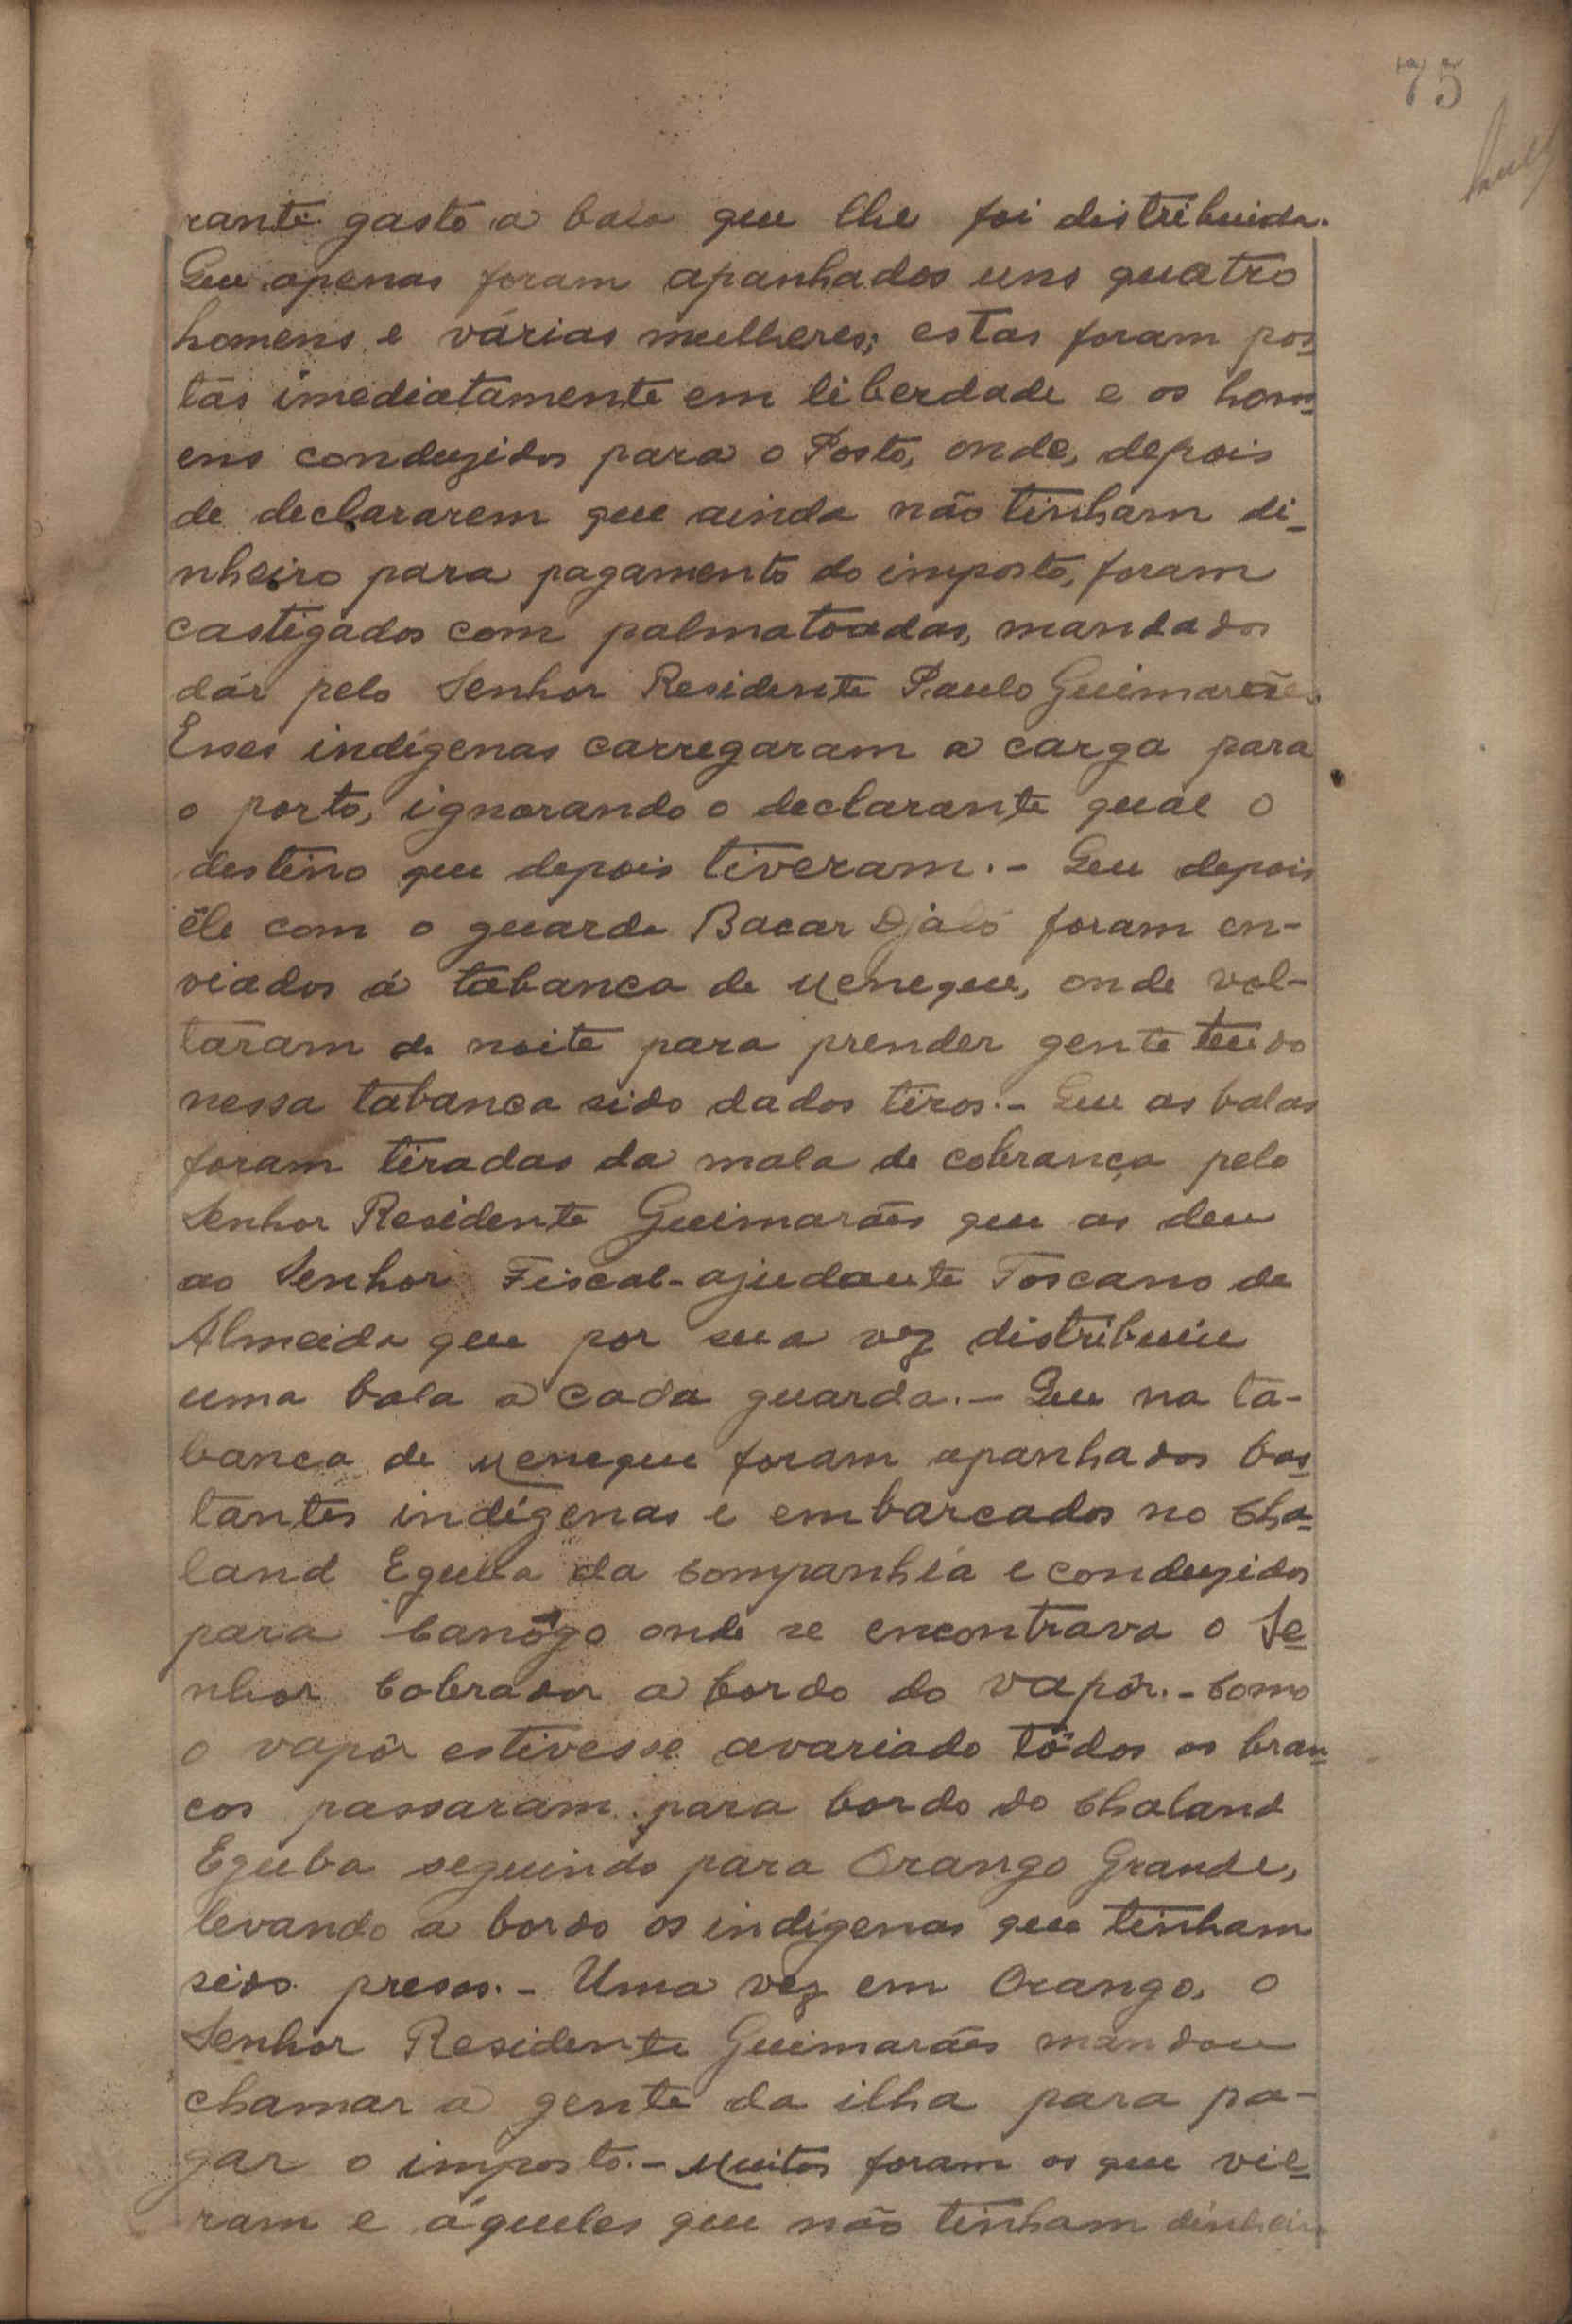 75
rante gasto a bala que lhe foi distribuida.
Que apenas foram apanhados uns quatro
homens e várias mulheres; estas foram pos-
tas imediatamente em liberdade e os hom-
ens conduzidos para o Posto, onde, depois
de declararem que ainda não tinham di-
nheiro para pagamento do imposto, foram
castigados com palmatoadas, mandados
dár pelo Senhor Residente Paulo Guimarães.
Esses indígenas carregaram a carga para
o porto, ignorando o declarante qual o
destino que depois tiveram.- Que depois
êle com o guarda Bacar Djaló foram en-
viados á tabanca de Meneque, onde vol-
taram de noite para prender gente tendo
nessa tabanca sido dados tiros.- Que as balas
foram tiradas da mala de cobrança pelo
Senhor Residente Guimarães que as deu
ao Senhor Fiscal-ajudante Toscano de
Almeida que por sua vez distribuiu
uma bala a cada guarda.- Que na ta-
banca de Meneque foram apanhados bas-
tantes indígenas e embarcados no Cha-
land Eguba da Companhia e conduzidos
para Canôgo onde se encontrava o Se-
nhor Cobrador a bordo do vapôr.- Como
o vapôr estivesse avariado tôdos os bran-
cos passaram para bordo do Chaland
Eguba seguindo para Orango Grande,
levando a bordo os indígenas que tinham
sido presos.- Uma vez em Orango, o
Senhor Residente Guimarães mandou
chamar a gente da ilha para pa-
gar o imposto.- Muitos foram os que vie-
ram e áqueles que não tinham dinheiro